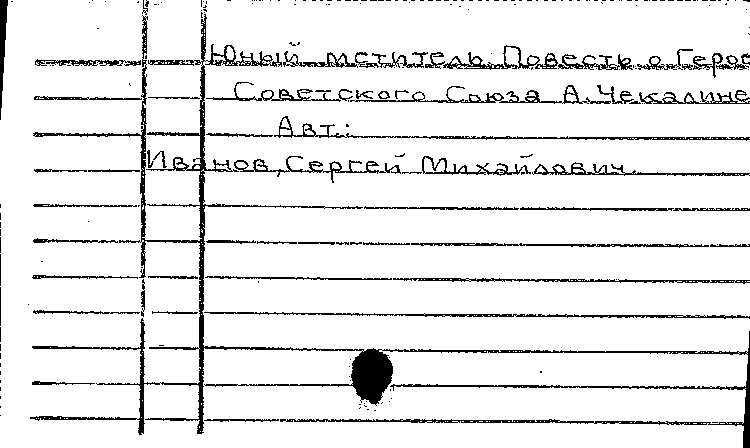 Юный мститель. Повесть о Герое
Советского Союза А. Чекалине
Авт.:
Иванов, Сергей Михайлович.